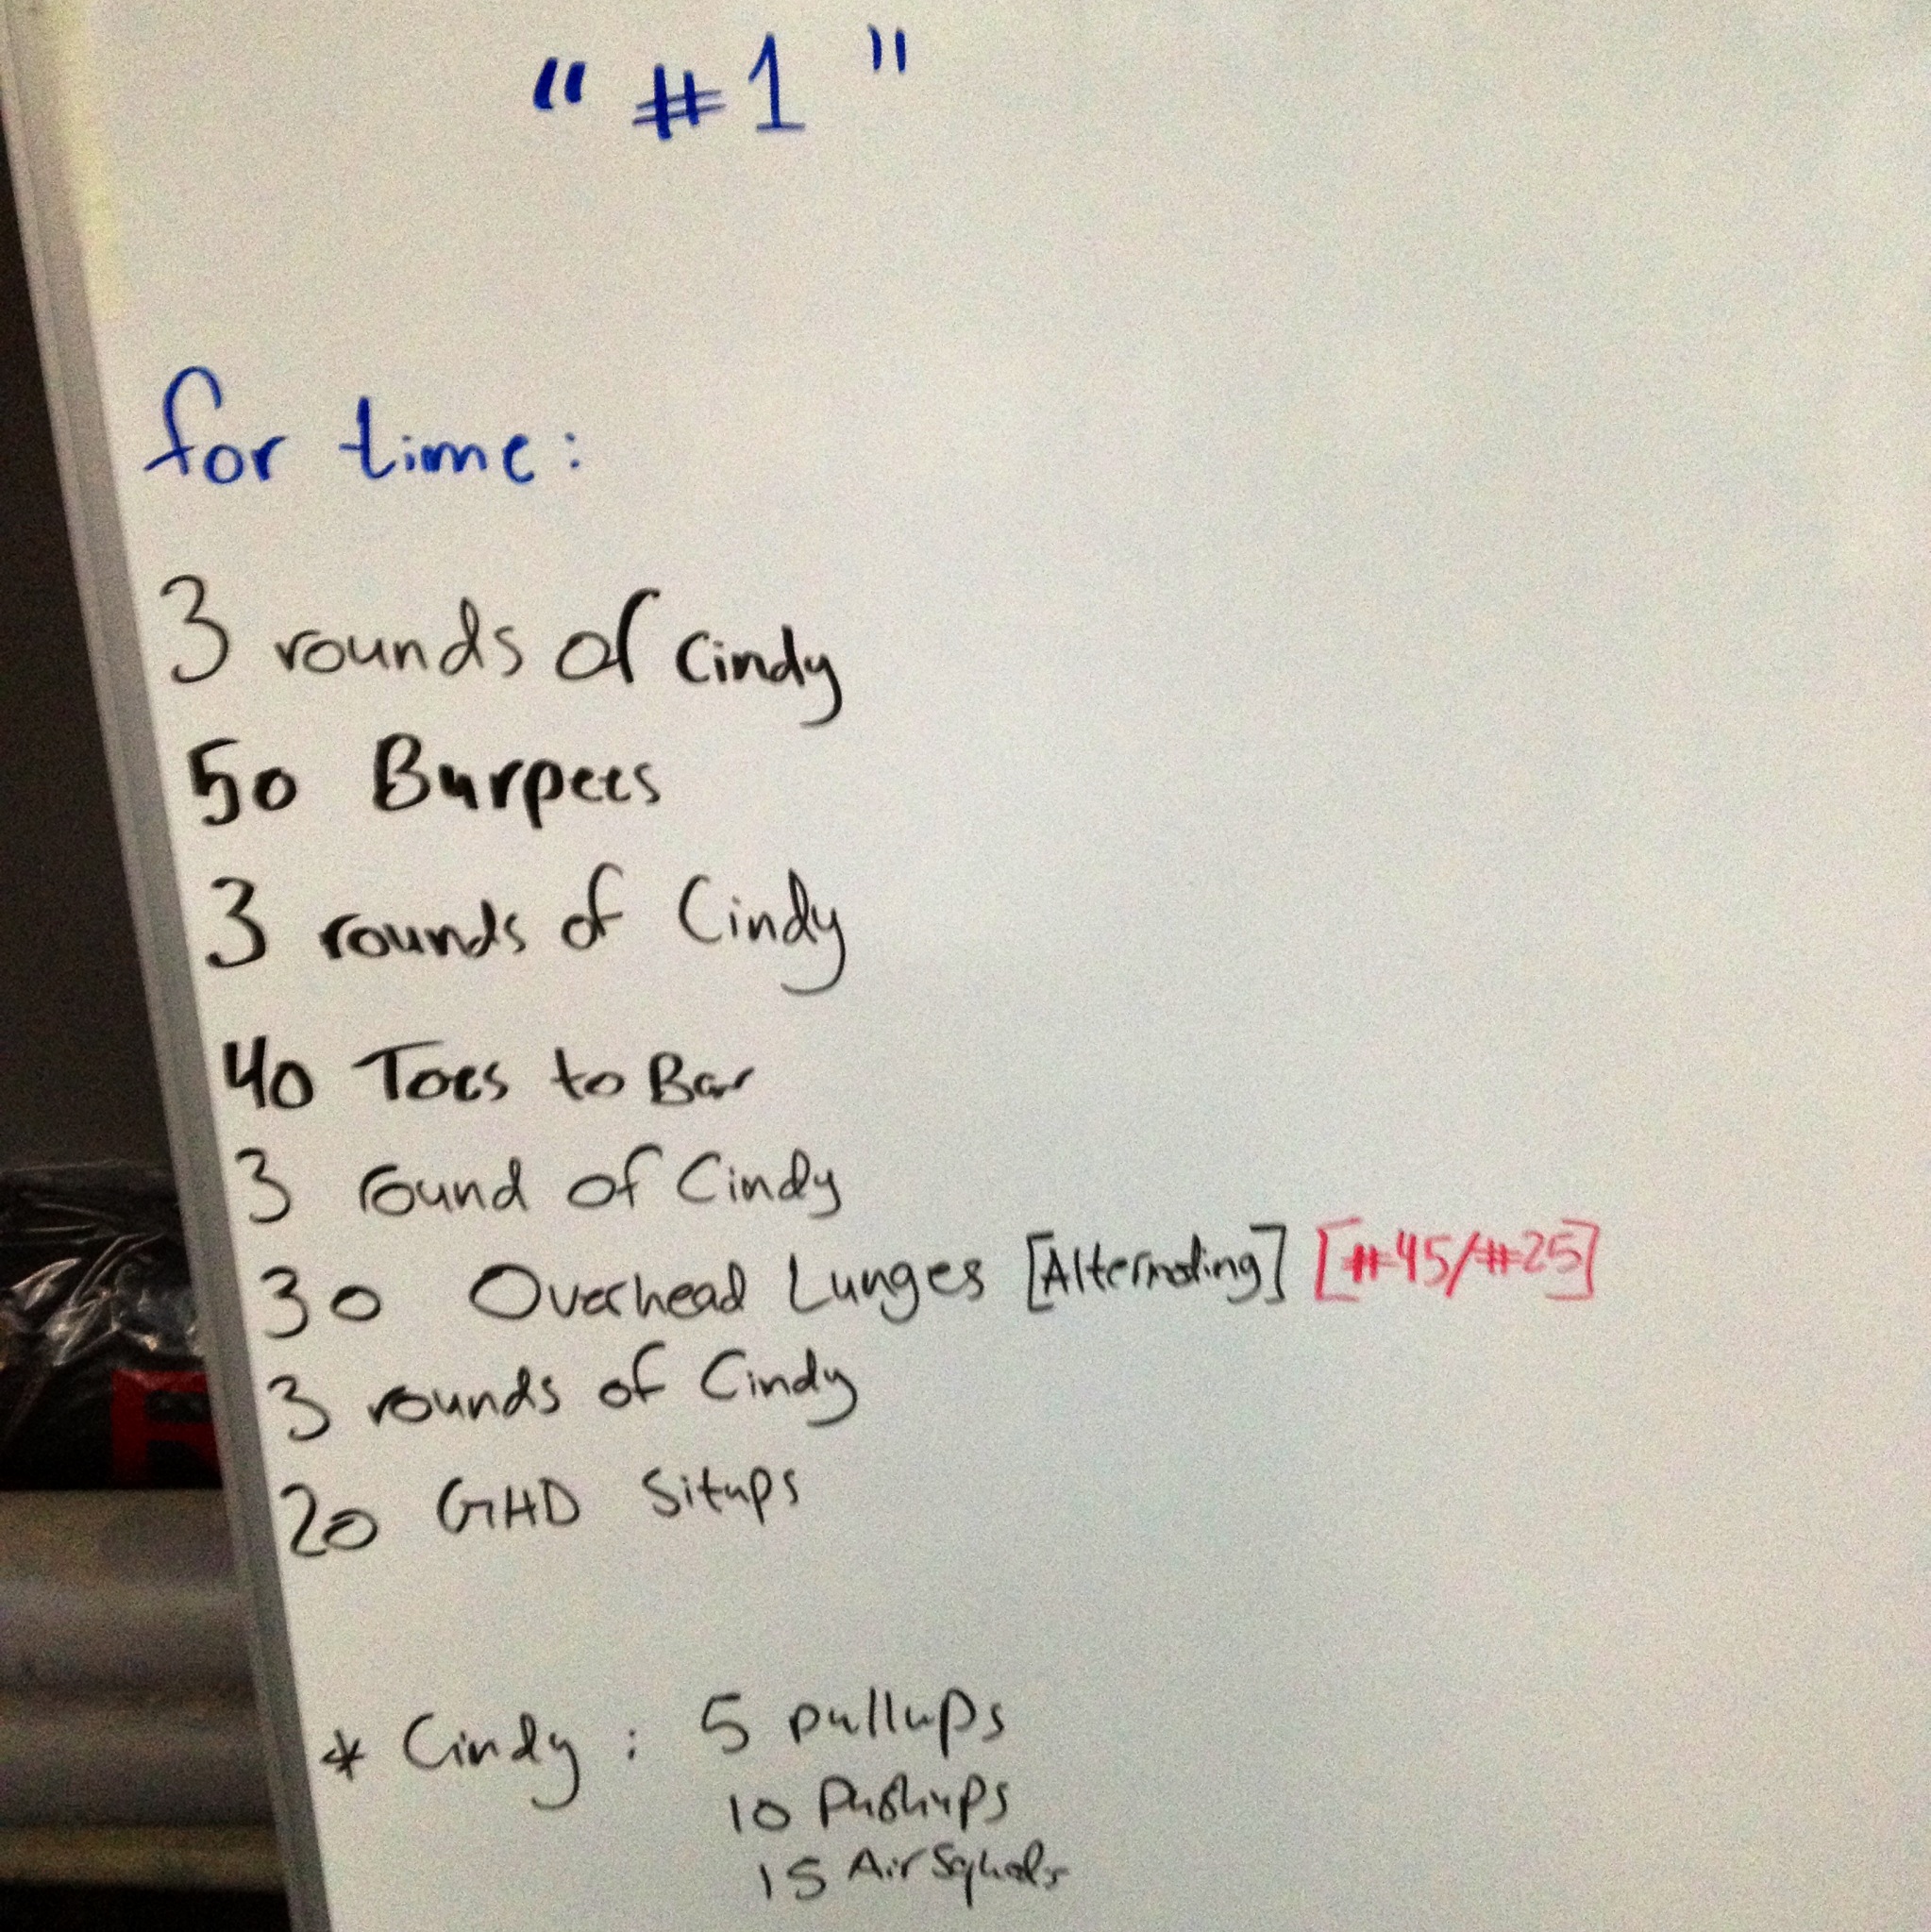 "#1"
for time:
3 rounds of Cindy
50 Burpees
3 rounds of Cindy
40 Toes to Bar
3 round of Cindy
30 Overhead Lunges [Alternating] [#45/#25]
3 rounds of Cindy
20 GHD Situps
* Cindy: 5 pullups
10 Pushups
15 Air Squats